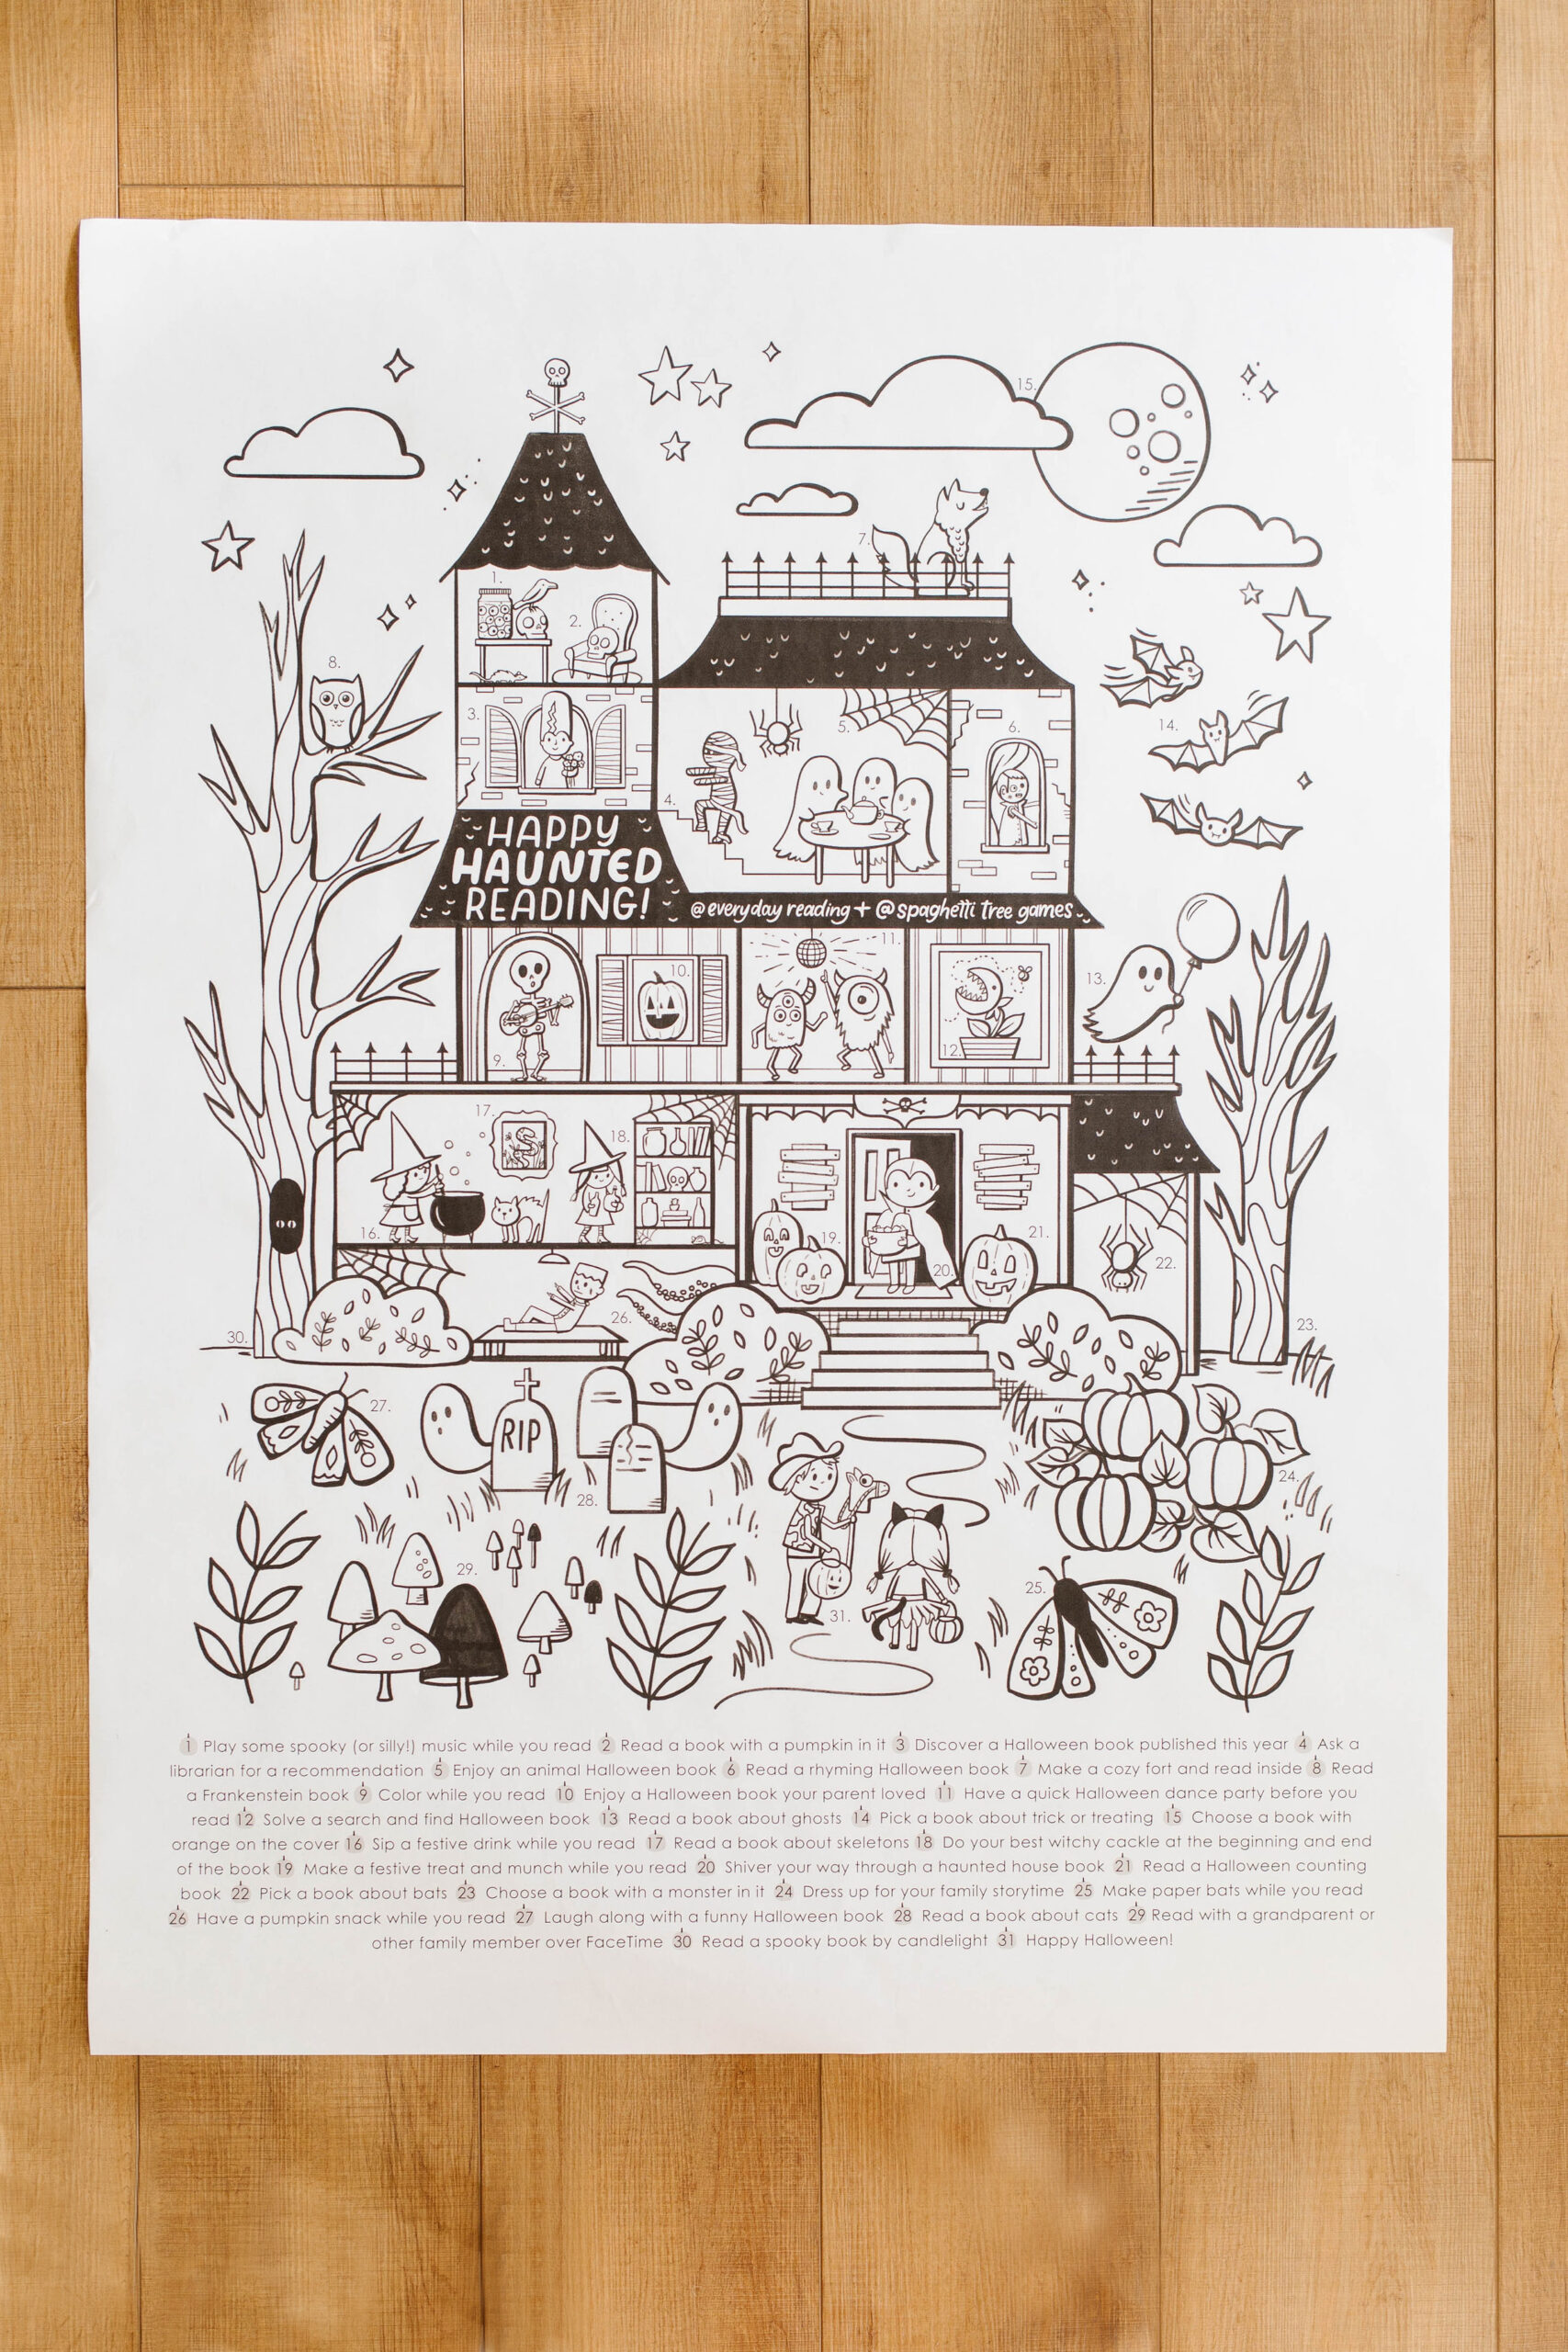 15.
7.
1.
2.
8.
3.
5.
14.
6.
4.
HAPPY
HAUNTED
READING!
@everyday reading + @spaghetti tree games
11.
10.
13.
12.
9.
17.
18.
16.
19.
21.
20.
22.
26.
30.
23.
27.
RIP
24.
28.
29.
25.
31.
1 Play some spooky (or silly!) music while you read 2 Read a book with a pumpkin in it 3 Discover a Halloween book published this year 4 Ask a
librarian for a recommendation 5 Enjoy an animal Halloween book 6 Read a rhyming Halloween book 7 Make a cozy fort and read inside 8 Read
a Frankenstein book 9 Color while you read 10 Enjoy a Halloween book your parent loved 11 Have a quick Halloween dance party before you
read 12 Solve a search and find Halloween book 13 Read a book about ghosts 14 Pick a book about trick or treating 15 Choose a book with
orange on the cover 16 Sip a festive drink while you read 17 Read a book about skeletons 18 Do your best witchy cackle at the beginning and end
of the book 19 Make a festive treat and munch while you read 20 Shiver your way through a haunted house book 21 Read a Halloween counting
book 22 Pick a book about bats 23 Choose a book with a monster in it 24 Dress up for your family storytime 25 Make paper bats while you read
26 Have a pumpkin snack while you read 27 Laugh along with a funny Halloween book 28 Read a book about cats 29 Read with a grandparent or
other family member over FaceTime 30 Read a spooky book by candlelight 31 Happy Halloween!